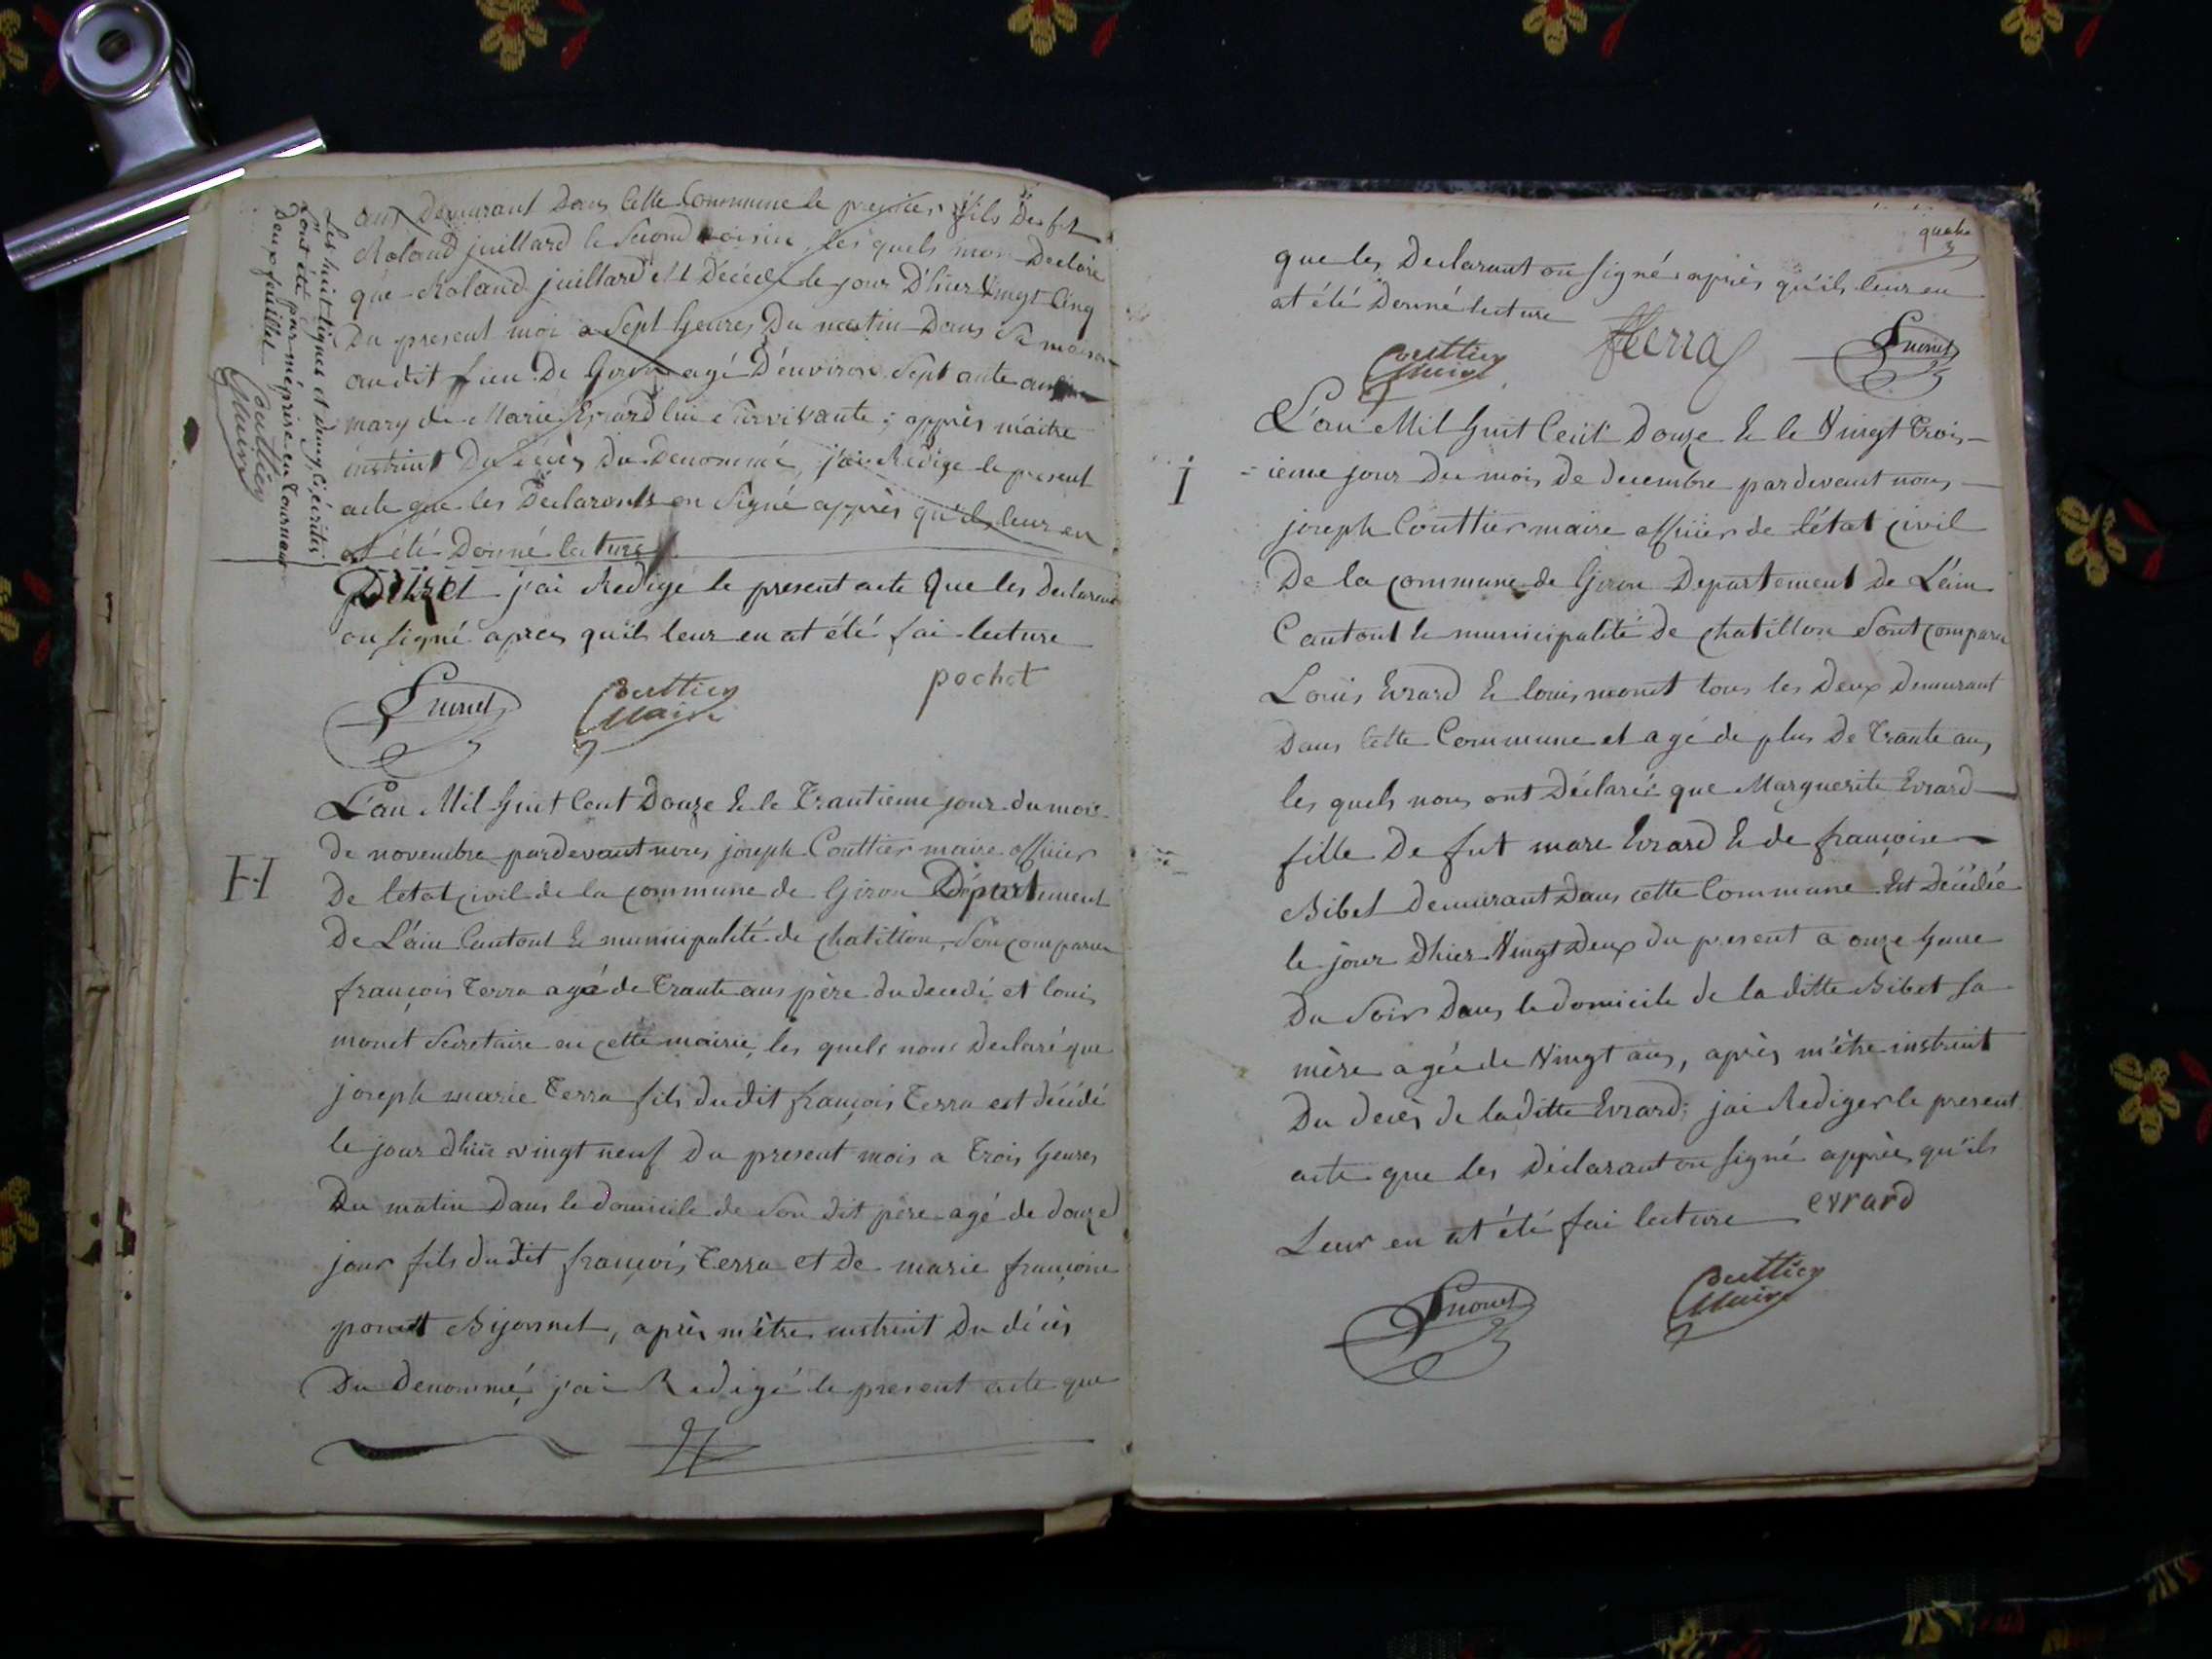 ans Demurant Dans Cette Commune le premier fils De fut
Roland juillard le second voisin, les quels mon Declaré
que Roland juillard est Décédé le jour D'hier Vingt Cinq
Du present moi a Sept heures Du matin Dans Sa maison
au dit lieu De Giron agé D'environ Sept ante ans
mary de Marie Evrard lui Survivante; apprès m'aitre
instruit Du décès Du Denommé, j'ai Redigé le present
acte que les Declarants on Signé apprès qu'ils leur en
at été Donné lecture
Les huit lignes et demy Ci écrites
l'ont été par méprise en Tournant
Deux feuillet
Couttier
Maire
j'ai Redigé le present acte que les Declarant
on signé apres qu'ils leur en at été fai lecture
Lmonet
Couttier
Maire
pochet
H
L'an Mil huit Cent Douze & le Trantieme jour du mois
de novembre pardevant nous joseph Couttier maire officier
De létat civil de la commune de Giron Département
De L'ain Cantont & municipalité de chatillon, Son comparu
françois Terra agé de Trante ans père du decedé et louis
monet Secretaire en cette mairie, les quels nous Declaré que
joseph marie Terra fils du dit françois Terra est décédé
le jour dhier vingt neuf Du present mois a Trois heures
Du matin Dans le domicile de Son dit père agé de douze
jour fils du dit françois Terra et De marie françoise
ponett Bijonnet, après m'être instruit Du décès
Du Denommé, j'ai Redigé le present acte que
quatre
que les Declarant on signé après qu'ils leur en
at été Donné lecture
Couttier
Maire
fTerra
Lmonet
I
L'an Mil huit Cent Douze & le Vingt Trois
ieme jour Du mois De decembre pardevant nous
joseph Couttier maire officier de létat civil
De la commune de Giron Departement de L'ain
Cantont & municipalité de chatillon Sont comparu
Louis Evrard & louis monet tous les Deux Demurant
Dans Cette Commune et agé de plus De Trante ans
les quels nous ont Déclaré que Marguerite Evrard
fille De fut marc Evrard & de françoise
Bibet Demurant Dans cette Commune Est Décédée
le jour Dhier Vingt Deux du present a onze heure
Du Soir Dans le domicile de la ditte Bibet sa
mère agée de Vingt ans, après m'être instruit
Du decès de la ditte Evrard; jai Rediger le present
acte que les Déclarant on signé apprès qu'ils
Leur en at été fai lecture
evrard
Lmonet
Couttier
Maire